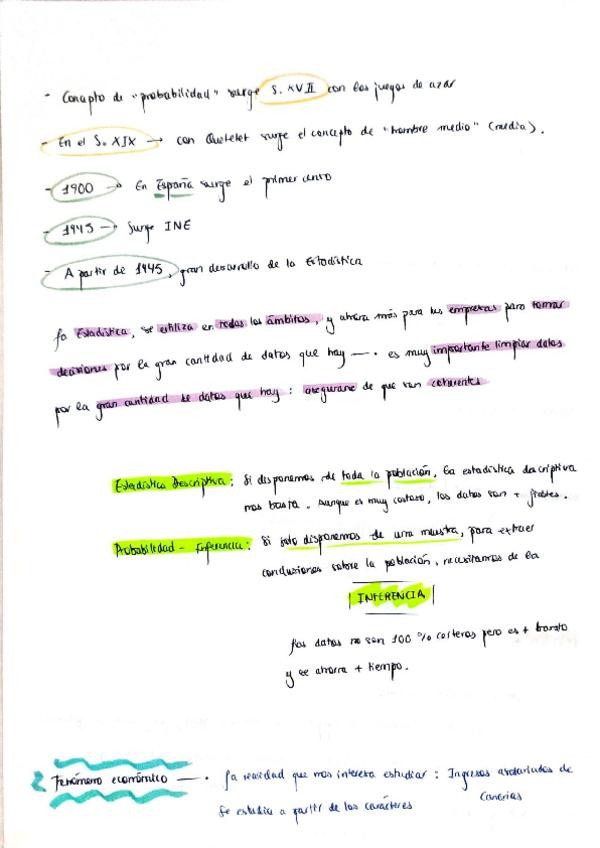 - Concepto de "probabilidad" surge S. XVII con los juegos de azar
- En el S. XIX → con Quetelet surge el concepto de "hombre medio" (media).
- 1900 → En España surge el primer censo
- 1945 → Surge INE
- A partir de 1945, gran desarrollo de la Estadística
La Estadística, se utiliza en todos los ámbitos, y ahora más para las empresas para tomar
decisiones por la gran cantidad de datos que hay —. es muy importante limpiar datos
por la gran cantidad de datos que hay : asegurarse de que son coherentes
Estadística Descriptiva : Si disponemos de toda la población. La estadística descriptiva
nos basta. Aunque es muy costoso, los datos son + fiables.
Probabilidad - Inferencia : Si solo disponemos de una muestra, para extraer
conclusiones sobre la población, necesitamos de la
INFERENCIA
Los datos no son 100 % certeros pero es + barato
y se ahorra + tiempo.
2 Fenómeno económico —. La realidad que nos interesa estudiar : Ingresos asalariados de
Canarias
Se estudia a partir de los carácteres